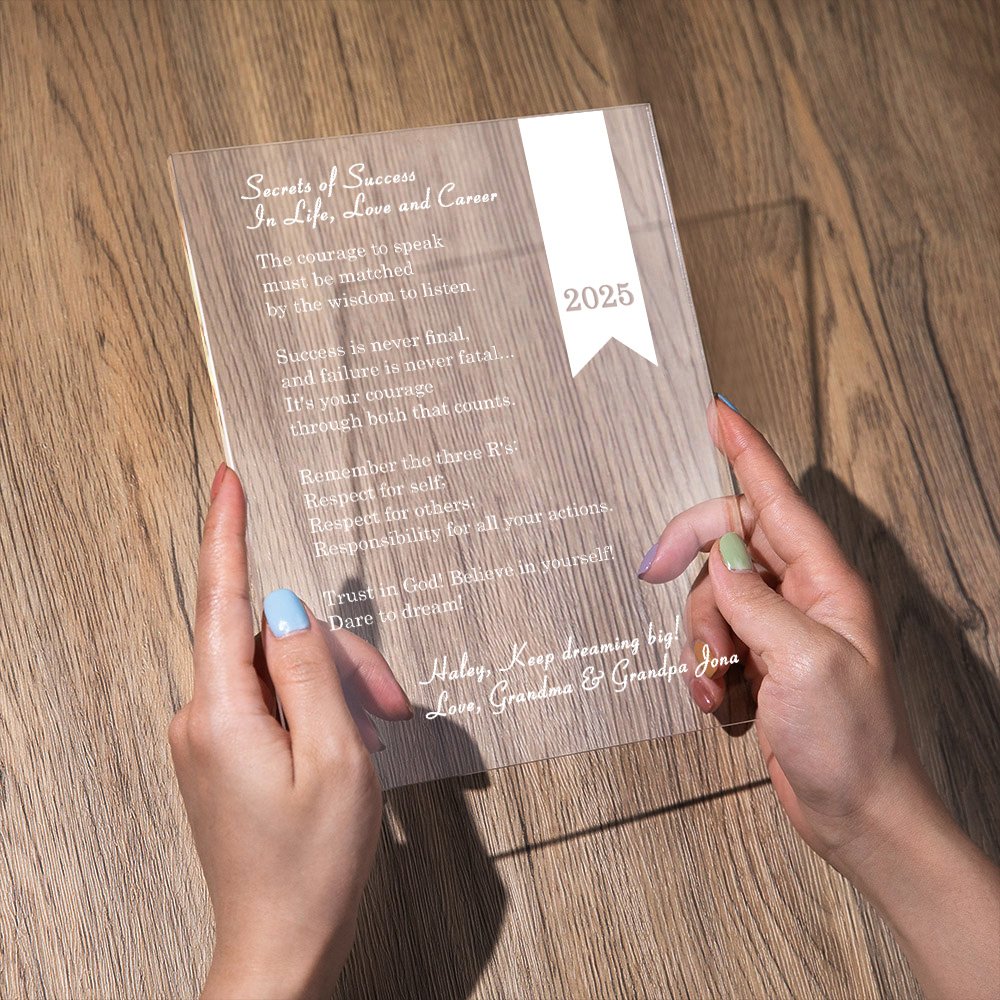 Secrets of Success
In Life, Love and Career
2025
The courage to speak
must be matched
by the wisdom to listen.
Success is never final,
and failure is never fatal...
It's your courage
through both that counts.
Remember the three R's:
Respect for self;
Respect for others;
Responsibility for all your actions.
Trust in God! Believe in yourself!
Dare to dream!
Haley, Keep dreaming big!
Love, Grandma & Grandpa Jona